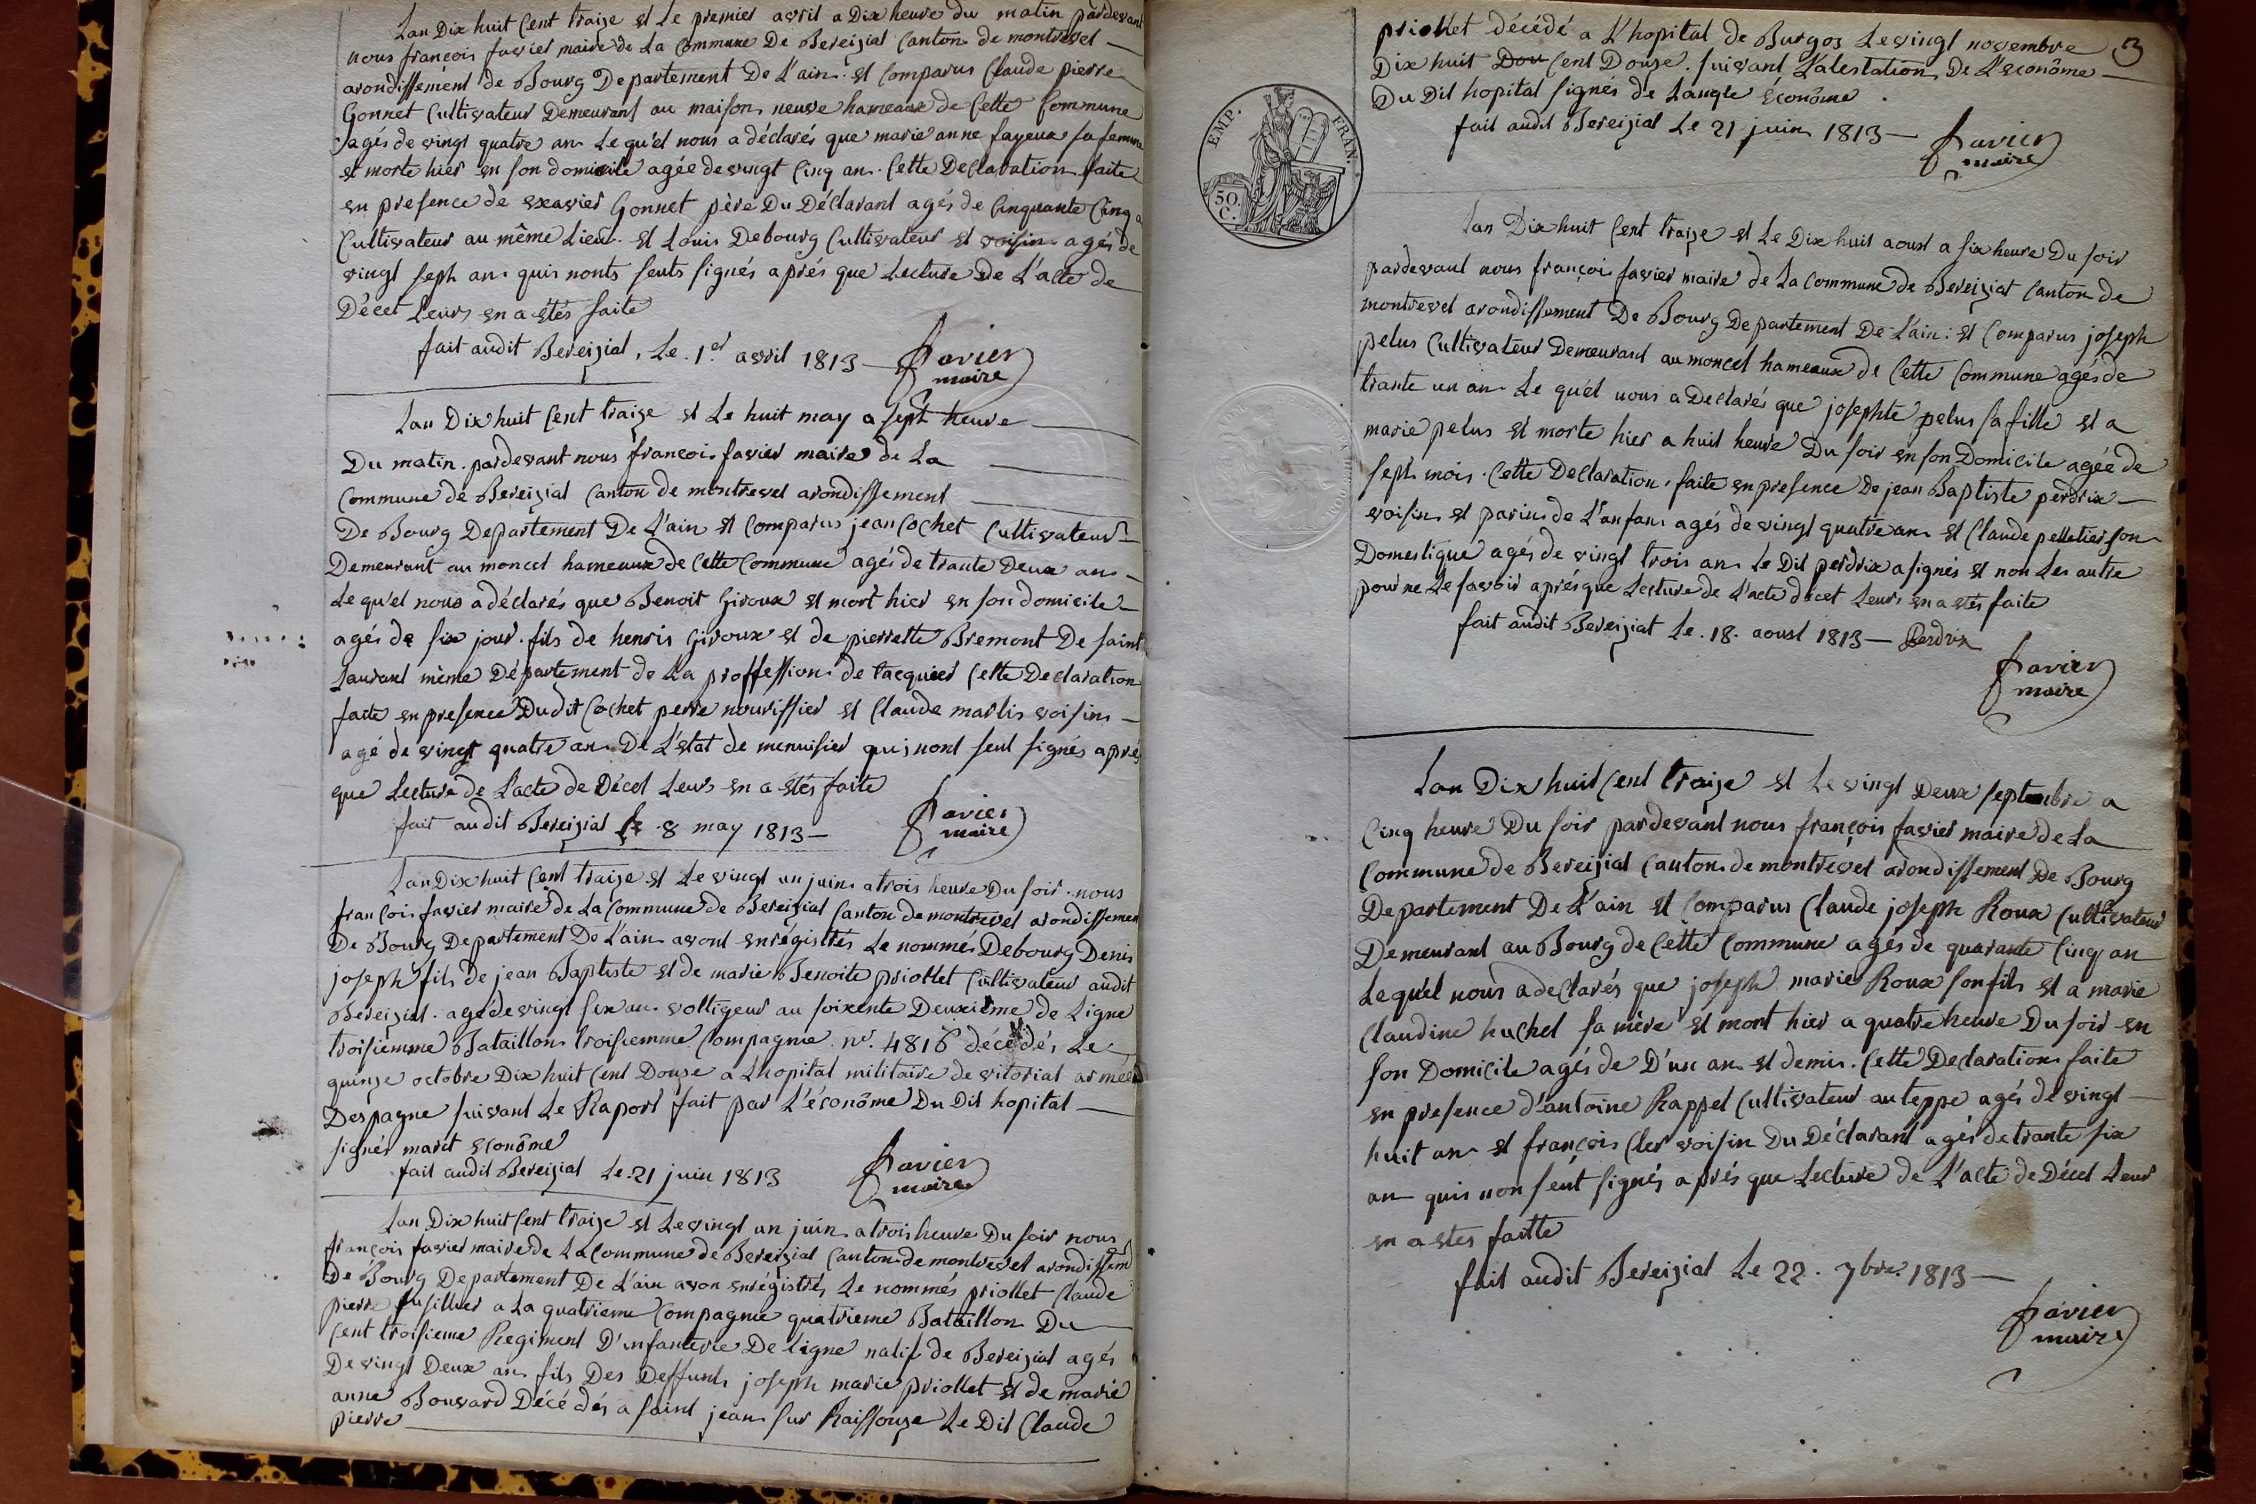 Lan Dix huit Cent traize et Le premier avril a Dix heure du matin pardevant
nous françois favier maire de La Commune De Bereiziat Canton de montrevel
arondissement de Bourg Departement De L'ain. et Comparus Claude pierre
Gonnet Cultivateur Demeurant au maison neuve hameaux de Cette Commune
agés de vingt quatre an Le qu'el nous a déclarés que marie anne fayeux sa femme
et morte hier en son domicile agée de vingt Cinq an. Cette Declaration faite
en presence de exavier Gonnet père Du Déclarant agés de Cinquante Cinq a
Cultivateur au même Lieu. et Louis Debourg Cultivateur et voisin agés de
vingt seph an quis nonts seuts signés aprés que Lecture De L'acte de
Décet Leurs en a étés faite
fait audit Bereiziat, Le 1.er avril 1813 — favier
maire
Lan Dix huit Cent traize et Le huit may a sept heure
Du matin. pardevant nous françois favier maire de La
Commune de Bereiziat Canton de montrevel arondissement
De Bourg Departement De L'ain et Comparus jean Cochet Cultivateur
Demeurant au moncel hameaux de Cette Commune agés de trante Deux an
Le qu'el nous a déclarés que Benoit Giroux et mort hier en son domicile
agés de six jour. fils de henris Giroux et de pierrette Bremont De saint
Laurant même Département de La proffession de tacquier Cette Declaration
faite en presence Dudit Cochet perre nourissier et Claude marlis voisins
agé de vingt quatre an De L'état de menuisier quj nont seut signés aprés
que Lecture de L'acte de Décet Leurs en a étés faite
fait audit Bereiziat Le 8 may 1813 — favier
maire
Lan Dix huit Cent traize et Le vingt un juin a trois heure Du soir. nous
françois favier maire de La Commune de Bereiziat Canton de montrevel arondissemen
De Bourg Departement De L'ain avont enrégistrés Le nommés Debourg Denis
joseph fils de jean Baptiste et de marie Benoite priollet Cultivateur audit
Bereiziat. agé de vingt six an voltigeur au soixente Deuxième de Ligne
troisiemme Bataillon troisiemme Compagnie n.º 4816 décédés Le
quinze octobre Dix huit Cent Douze a L'hopital militaire de vitoriat armée
Despagne suivant Le Raport fait par L'économe Du Dit hopital
signés marit Econôme
fait audit Bereiziat Le 21 juin 1813 favier
maire
Lan Dix huit Cent traize et Le vingt un juin a trois heure Du soir nous
françois favier maire de La Commune de Bereiziat Canton de montrevel arondissem
De Bourg Departement De L'ain avon enrégistrés Le nommés priollet Claude
pierre fusillier a La quatrieme Compagnie quatrieme Bataillon Du
Cent troisieme Regiment D'infanterie De Ligne natif de Bereiziat agés
De vingt Deux an fils Des Deffunts joseph marie priollet et de marie
anne Bouvard Décédés a saint jean sur Raissouze Le Dit Claude
pierre
priollet décédé a L'hopital de Burgos Le vingt novembre
Dix huit Dou Cent Douze. suivant L'atestation De L'econôme
Du Dit hopital signés de Langle Econôme
fait audit Bereiziat Le 21 juin 1813 — favier
maire
3
EMP. FRAN.
50.
C.
Lan Dix huit Cent traize et Le Dix huit aoust a six heure Du soir
pardevant nous françois favier maire de La Commune de Bereiziat Canton de
montrevel arondissement De Bourg Departement De L'ain: et Comparus joseph
pelus Cultivateur Demeurant au moncel hameaux de Cette Commune agés de
trante un an Le qu'el nous a Declarés que josephte pelus sa fille et a
marie pelus et morte hier a huit heure Du soir en son Domicile agée de
seph mois. Cette Declaration faite en presence De jean Baptiste perdrix
voisin et parin de L'anfan agés de vingt quatre an et Claude pelletier son
Domestique agés de vingt trois an Le Dit perdrix a signés et non Les autre
pour ne Le savoir aprés que Lecture de L'acte décet Leurs en a étés faite
fait audit Bereiziat Le .18. aoust 1813 — Perdrix
favier
maire
Lan Dix huit Cent traize et Le vingt Deux septembre a
Cinq heure Du soir pardevant nous françois favier maire de La
Commune de Bereiziat Canton de montrevel arondissement De Bourg
Departement De L'ain et Comparus Claude joseph Roux Cultivateur
Demeurant au Bourg de Cette Commune agés de quarante Cinq an
Le qu'el nous a declarés que joseph marie Roux son fils et a marie
Claudine huchet sa mère et mort hier a quatre heure Du soir en
son Domicile agés de D'un an et demis. Cette Declaration faite
en presence d'antoine Rappet Cultivateur au teppe agés de vingt
huit an et françois Cler voisin Du Déclarant agés de trante six
an quis non seut signés aprés que Lecture de L'acte de Décet Leur
en a étés faitte
fait audit Bereiziat Le 22. 7bre. 1813 —
favier
maire